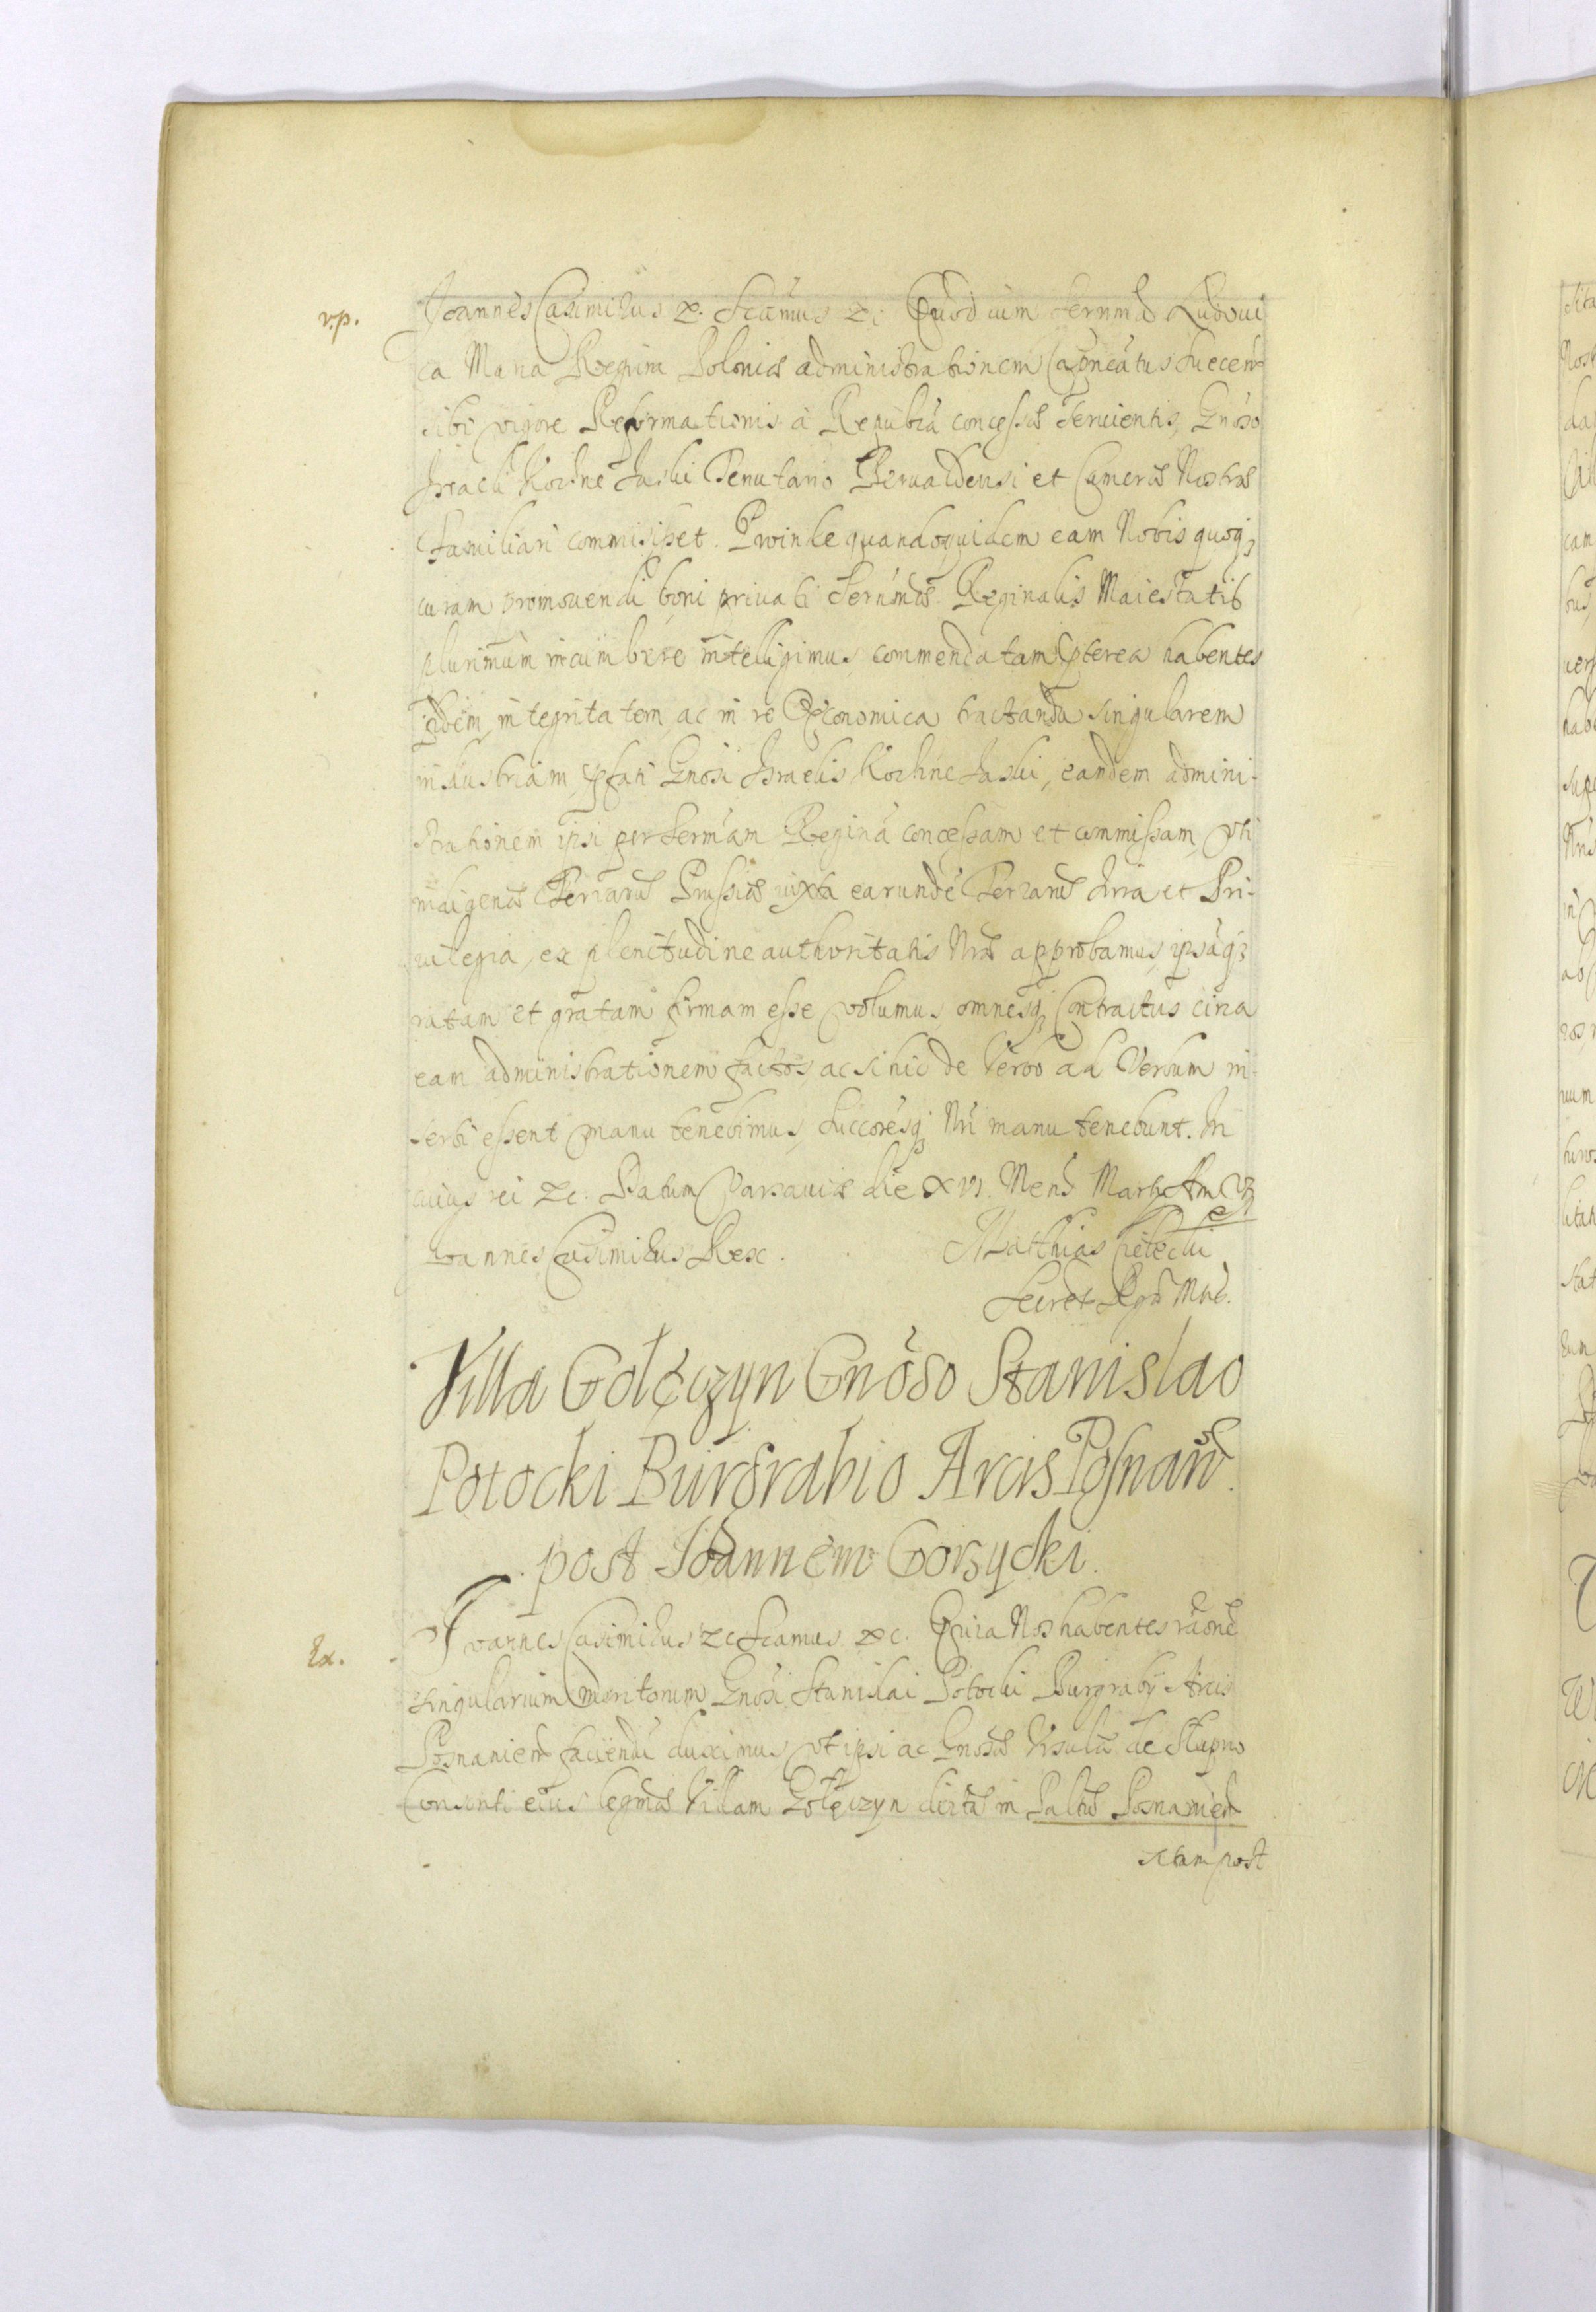 v.p.
Joannes Casimirus &c. Scamus &c. Quod cum Sernma Ludoui
ca Maria Regina Poloniæ administrationem Capneatus Suecen
sibi vigore Reformationis à Republca concessæ seruientis, Gnoso
Israeli Kochne Jaski Tenutario Berualdensi et Cameræ Nostræ
familiari commisisset. Proinde quandoquidem eam Nobis quoq;
curam promouendi boni priuati Sernmæ Reginalis Maiestatis
plurimum incumbere intelligimus, commendatam pterea habentes
fidem, integritatem, ac in re Œconomica tractanda singularem
industriam, pfati Gnosi Israelis Kochne Jaski, eandem admini-
strationem ipsi per Sermam Reginã concessam et commissam, vti
indigenæ Terrarũ Prussiæ iuxta earundẽ Terrarũ Iura et Pri-
uilegia, ex plenitudine authoritatis Nræ approbamus, ipsãq;
ratam et gratam firmam esse volumus, omnesq; Contractus circa
eam administrationem factos, ac si hic de Verbo ad Verbum in
serti essent manu tenebimus, Succoresq; Nri manu tenebunt. In
cuius rei &c. Datum Varsauiæ die XVI. Mens Martij Ano
Ioannes Casimirus Rex. Mathias
Secret Mtis.
Villa Golęczyn Gnoso Stanislao
Potocki Burgrabio Arcis Posnan.
post Ioannem Gorzycki.
Ex.
Joannes Casimirus &c Scamus &c. Quia Nos habentes raone
singularium meritorum Gnosi Stanislai Potocki Burgrabij Arcis
Posnanien faciendũ duximus, vt ipsi ac Gnosæ Vrsulæ de Słupno
Consorti eius legmæ Villam Golęczyn dictã in Paltu Posnanien
sitam post